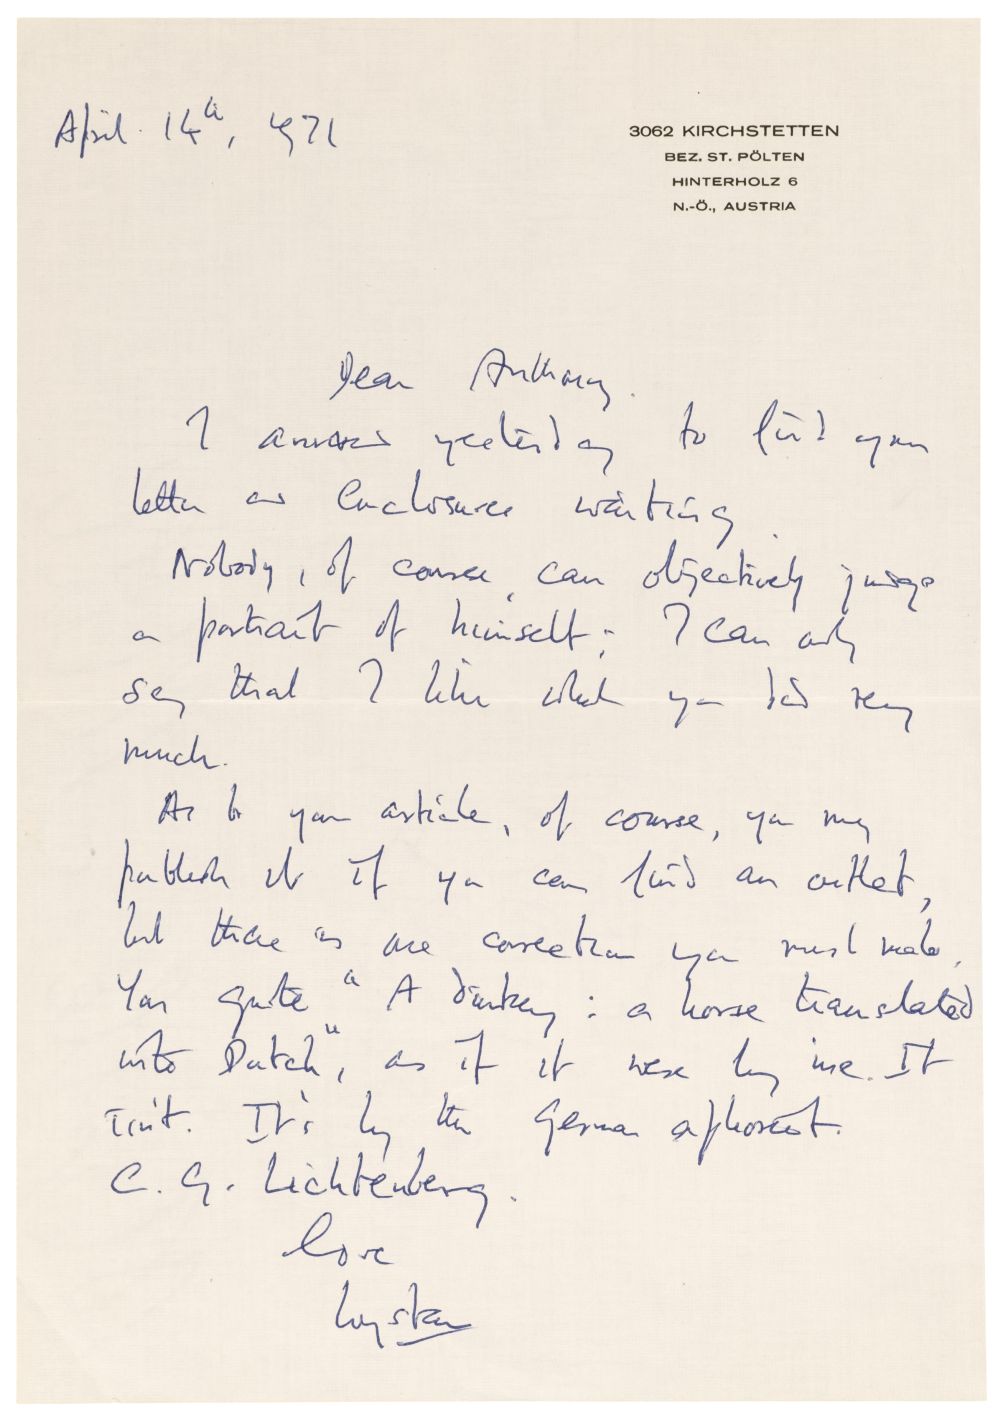 April 14th, 1971
3062 KIRCHSTETTEN
BEZ. ST. PÖLTEN
HINTERHOLZ 6
N.-Ö., AUSTRIA
Dear Anthony.
I arrived yesterday to find your
letter and enclosures waiting.
Nobody, of course, can objectively judge
a portrait of himself; I can only
say that I like what you did very
much.
As to your article, of course, you may
publish it if you can find an outlet,
but there is one correction you must make.
You quote "A donkey: a horse translated
into Dutch", as if it were by me. It
isn't. It's by the German aphorist.
C. G. Lichtenberg.
Love
Wystan